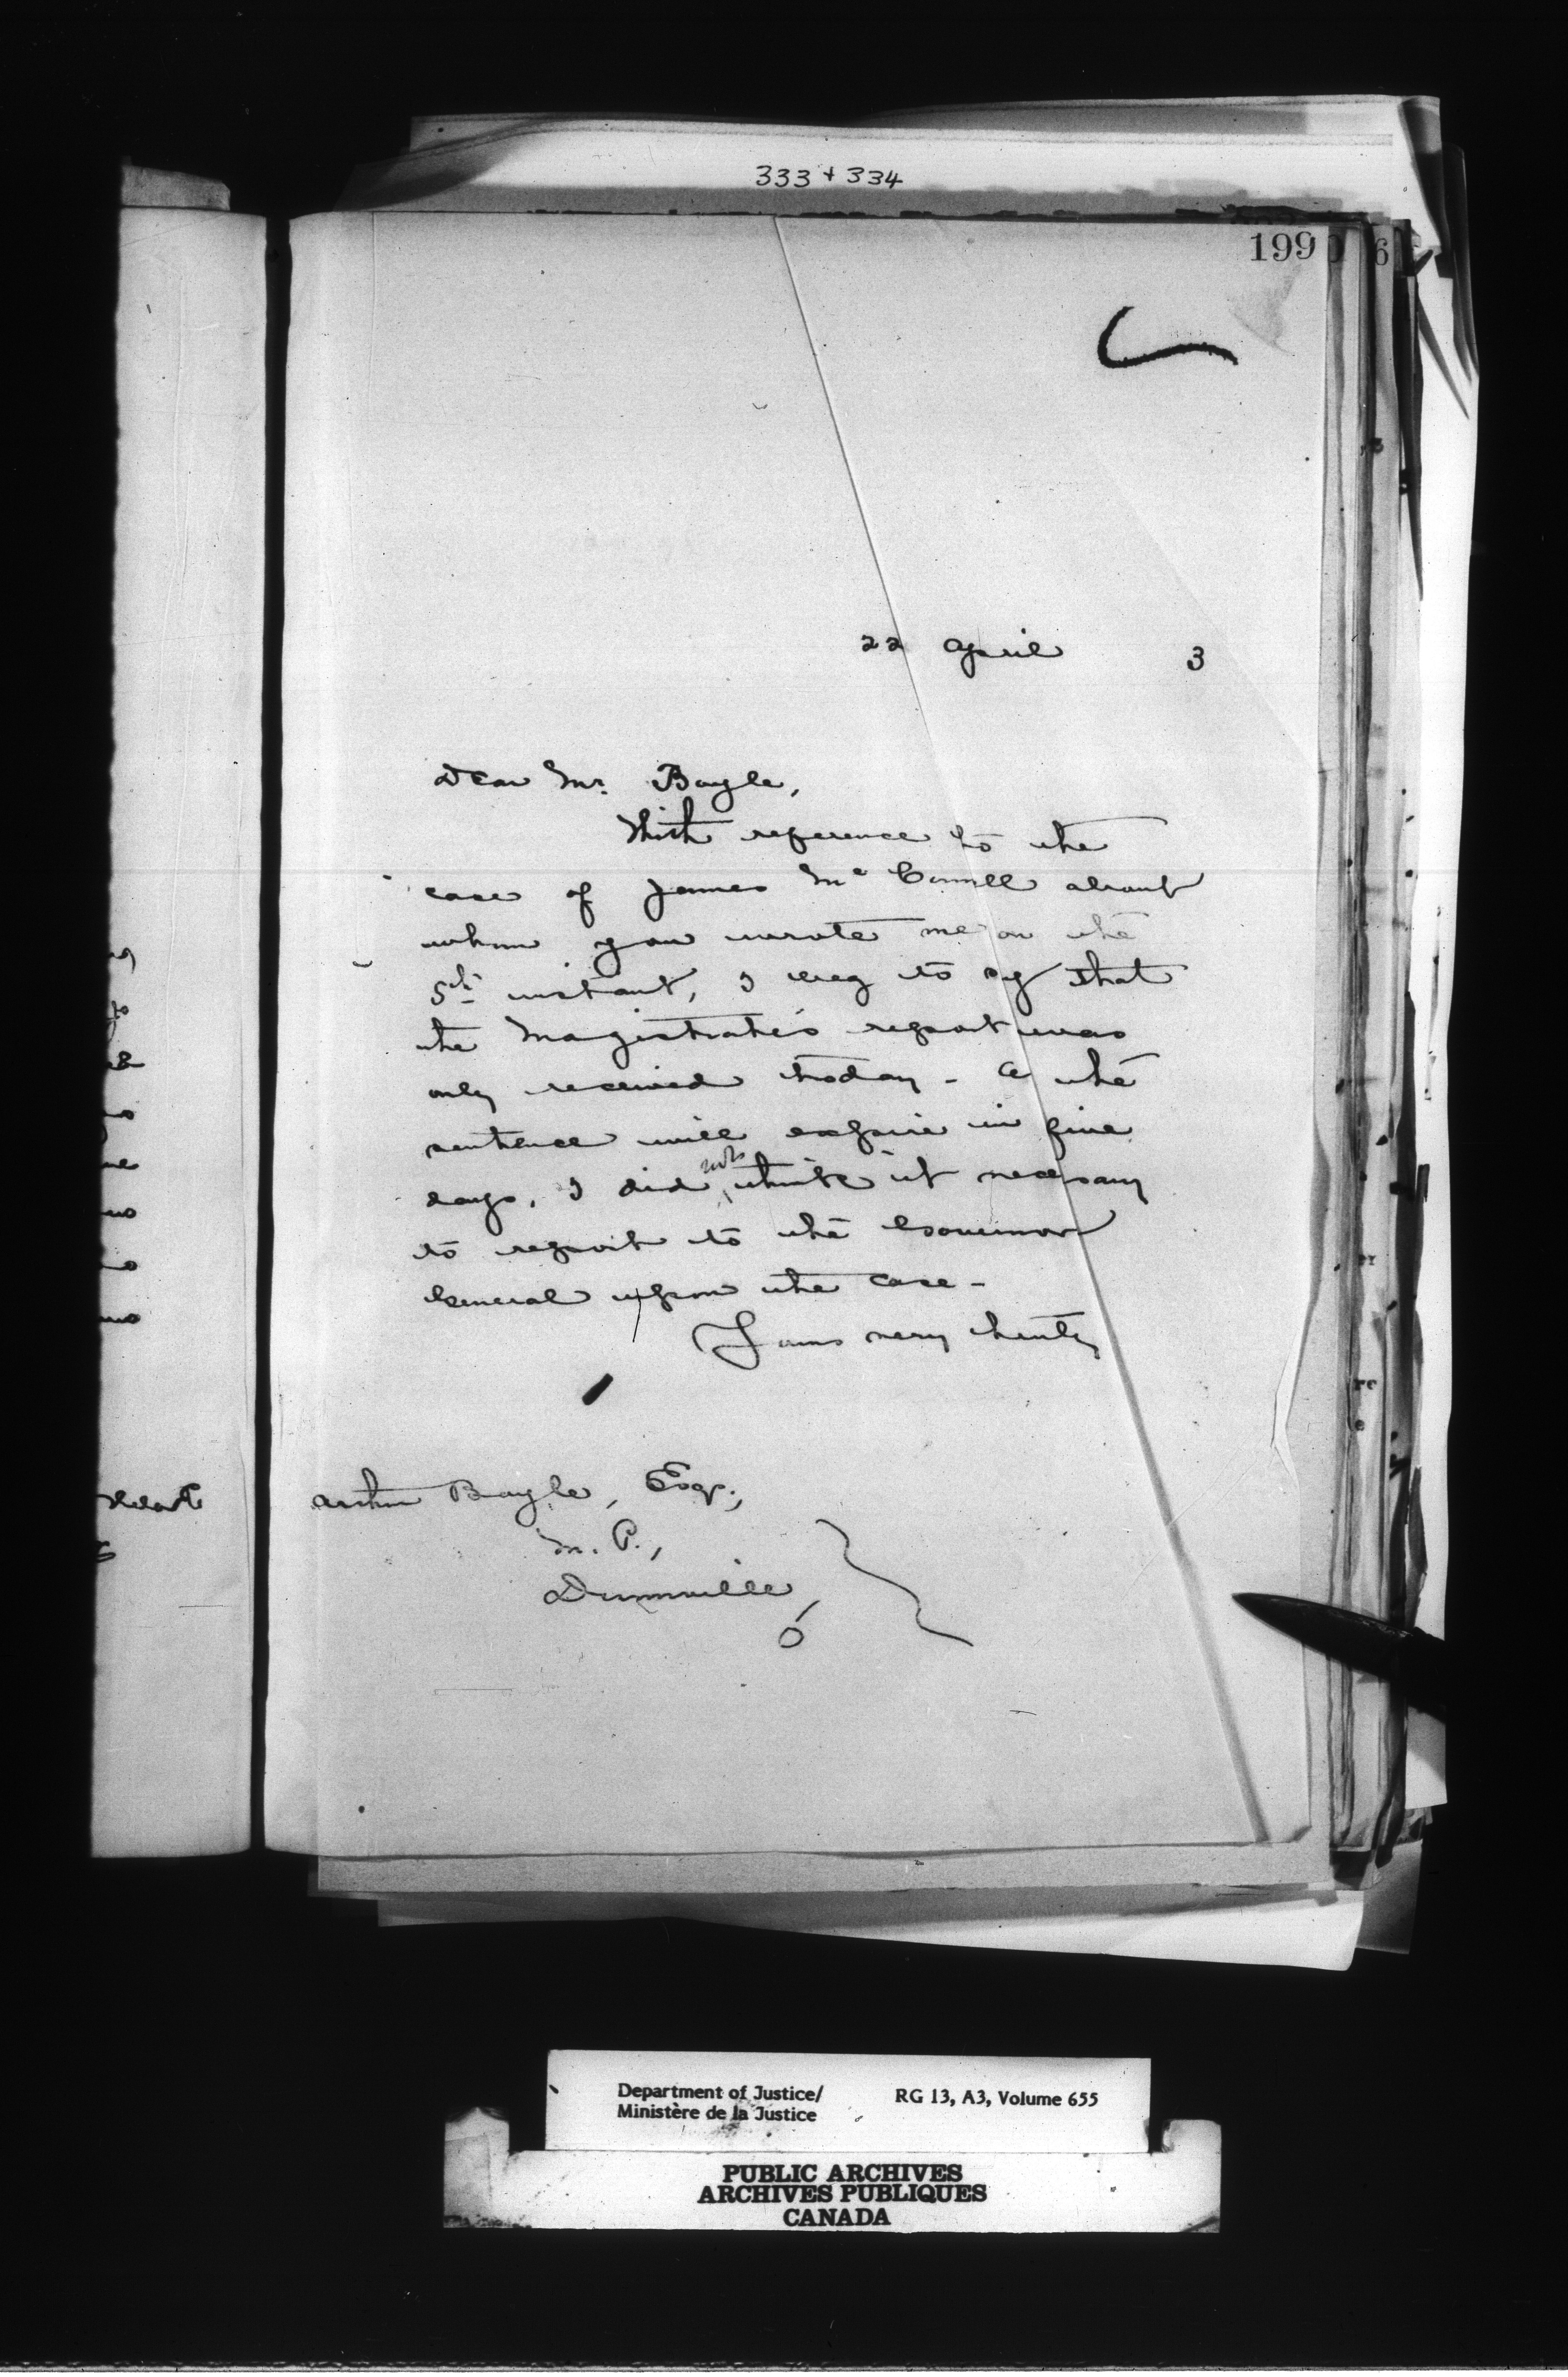 333 + 334
199
6
22 April 3
Dear Mr. Boyle,
With reference to the
case of James McConnell about
whom you wrote me on the
5th instant, I beg to say that
the Magistrate's report was
only received today - As the
sentence will expire in five
days, I did not think it necessary
to report to the Governor
General upon the case -
Yours very truly
Arthur Boyle, Esq.,
M. P.,
Dunnville,
O
Department of Justice/
Ministère de la Justice
RG 13, A3, Volume 655
PUBLIC ARCHIVES
ARCHIVES PUBLIQUES
CANADA